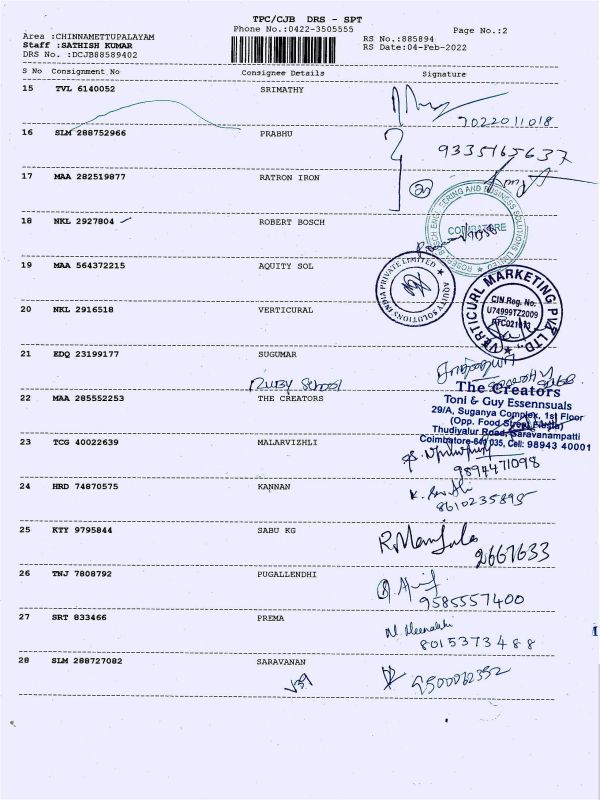 TPC/CJB DRS - SPT
Area :CHINNAMETTUPALAYAM
Phone No.:0422-3505555
Page No.:2
Staff :SATHISH KUMAR
RS No.:885894
DRS No. :DCJB88589402
RS Date:04-Feb-2022
S No Consignment No Consignee Details Signature
15 TVL 6140052 SRIMATHY
7022011018
16 SLM 288752966 PRABHU
9335165637
17 MAA 282519877 RATRON IRON
18 NKL 2927804 ROBERT BOSCH
ROBERT BOSCH ENGINEERING AND BUSINESS SOLUTIONS LIMITED
COIMBATORE
19 MAA 564372215 AQUITY SOL
AQUITY SOLUTIONS INDIA PRIVATE LIMITED
20 NKL 2916518 VERTICURAL
VERTICURL MARKETING PVT. LTD.
CIN Reg. No:
U74999TZ2009
21 EDQ 23199177 SUGUMAR
RUBY SCHOOL
22 MAA 285552253 THE CREATORS
The Creators
Toni & Guy Essennsuals
29/A, Suganya Complex, 1st Floor
(Opp. Food Street Alesta)
Thudiyalur Road, Saravanampatti
Coimbatore-641 035, Cell: 98943 40001
23 TCG 40022639 MALARVIZHLI
9894471098
24 HRD 74870575 KANNAN
8610235895
25 KTY 9795844 SABU KG
R.Manjula
2661633
26 TNJ 7808792 PUGALLENDHI
9585557400
27 SRT 833466 PREMA
M. Meenakshi
8015373488
28 SLM 288727082 SARAVANAN
9500062352